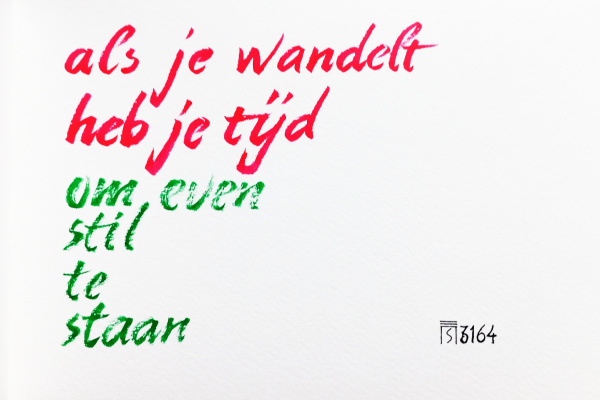 als je wandelt
heb je tijd
om even
stil
te
staan
3164